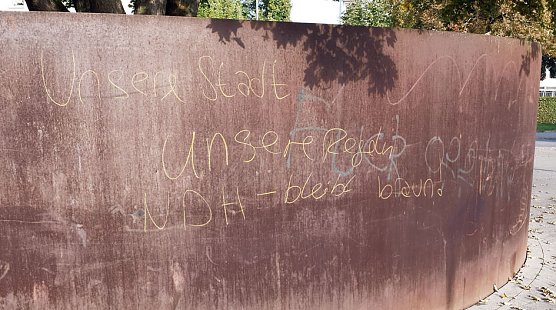 Unsere Stadt
Unsere Regeln
NDH - bleibt braun!